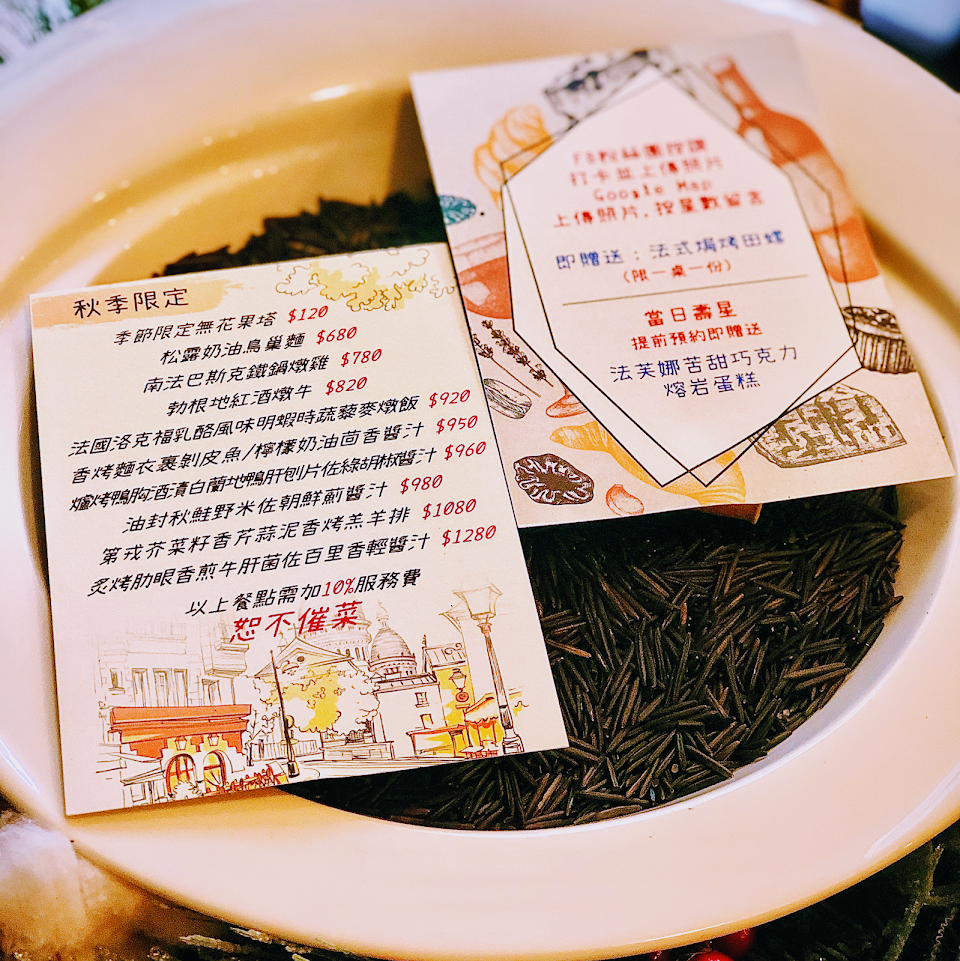 秋季限定
季節限定無花果塔 $120
松露奶油鳥巢麵 $680
南法巴斯克鐵鍋燉雞 $780
勃根地紅酒燉牛 $820
法國洛克福乳酪風味明蝦時蔬藜麥燉飯 $920
香烤麵衣裹剝皮魚/檸檬奶油茴香醬汁 $950
爐烤鴨胸酒漬白蘭地鴨肝刨片佐綠胡椒醬汁 $960
油封秋鮭野米佐朝鮮薊醬汁 $980
第戎芥菜籽香芹蒜泥香烤羔羊排 $1080
炙烤肋眼香煎牛肝菌佐百里香輕醬汁 $1280
以上餐點需加10%服務費
恕不催菜
FB粉絲團按讚
打卡並上傳照片
Google Map
上傳照片,按星數留言
即贈送:法式焗烤田螺
(限一桌一份)
當日壽星
提前預約即贈送
法芙娜苦甜巧克力
熔岩蛋糕